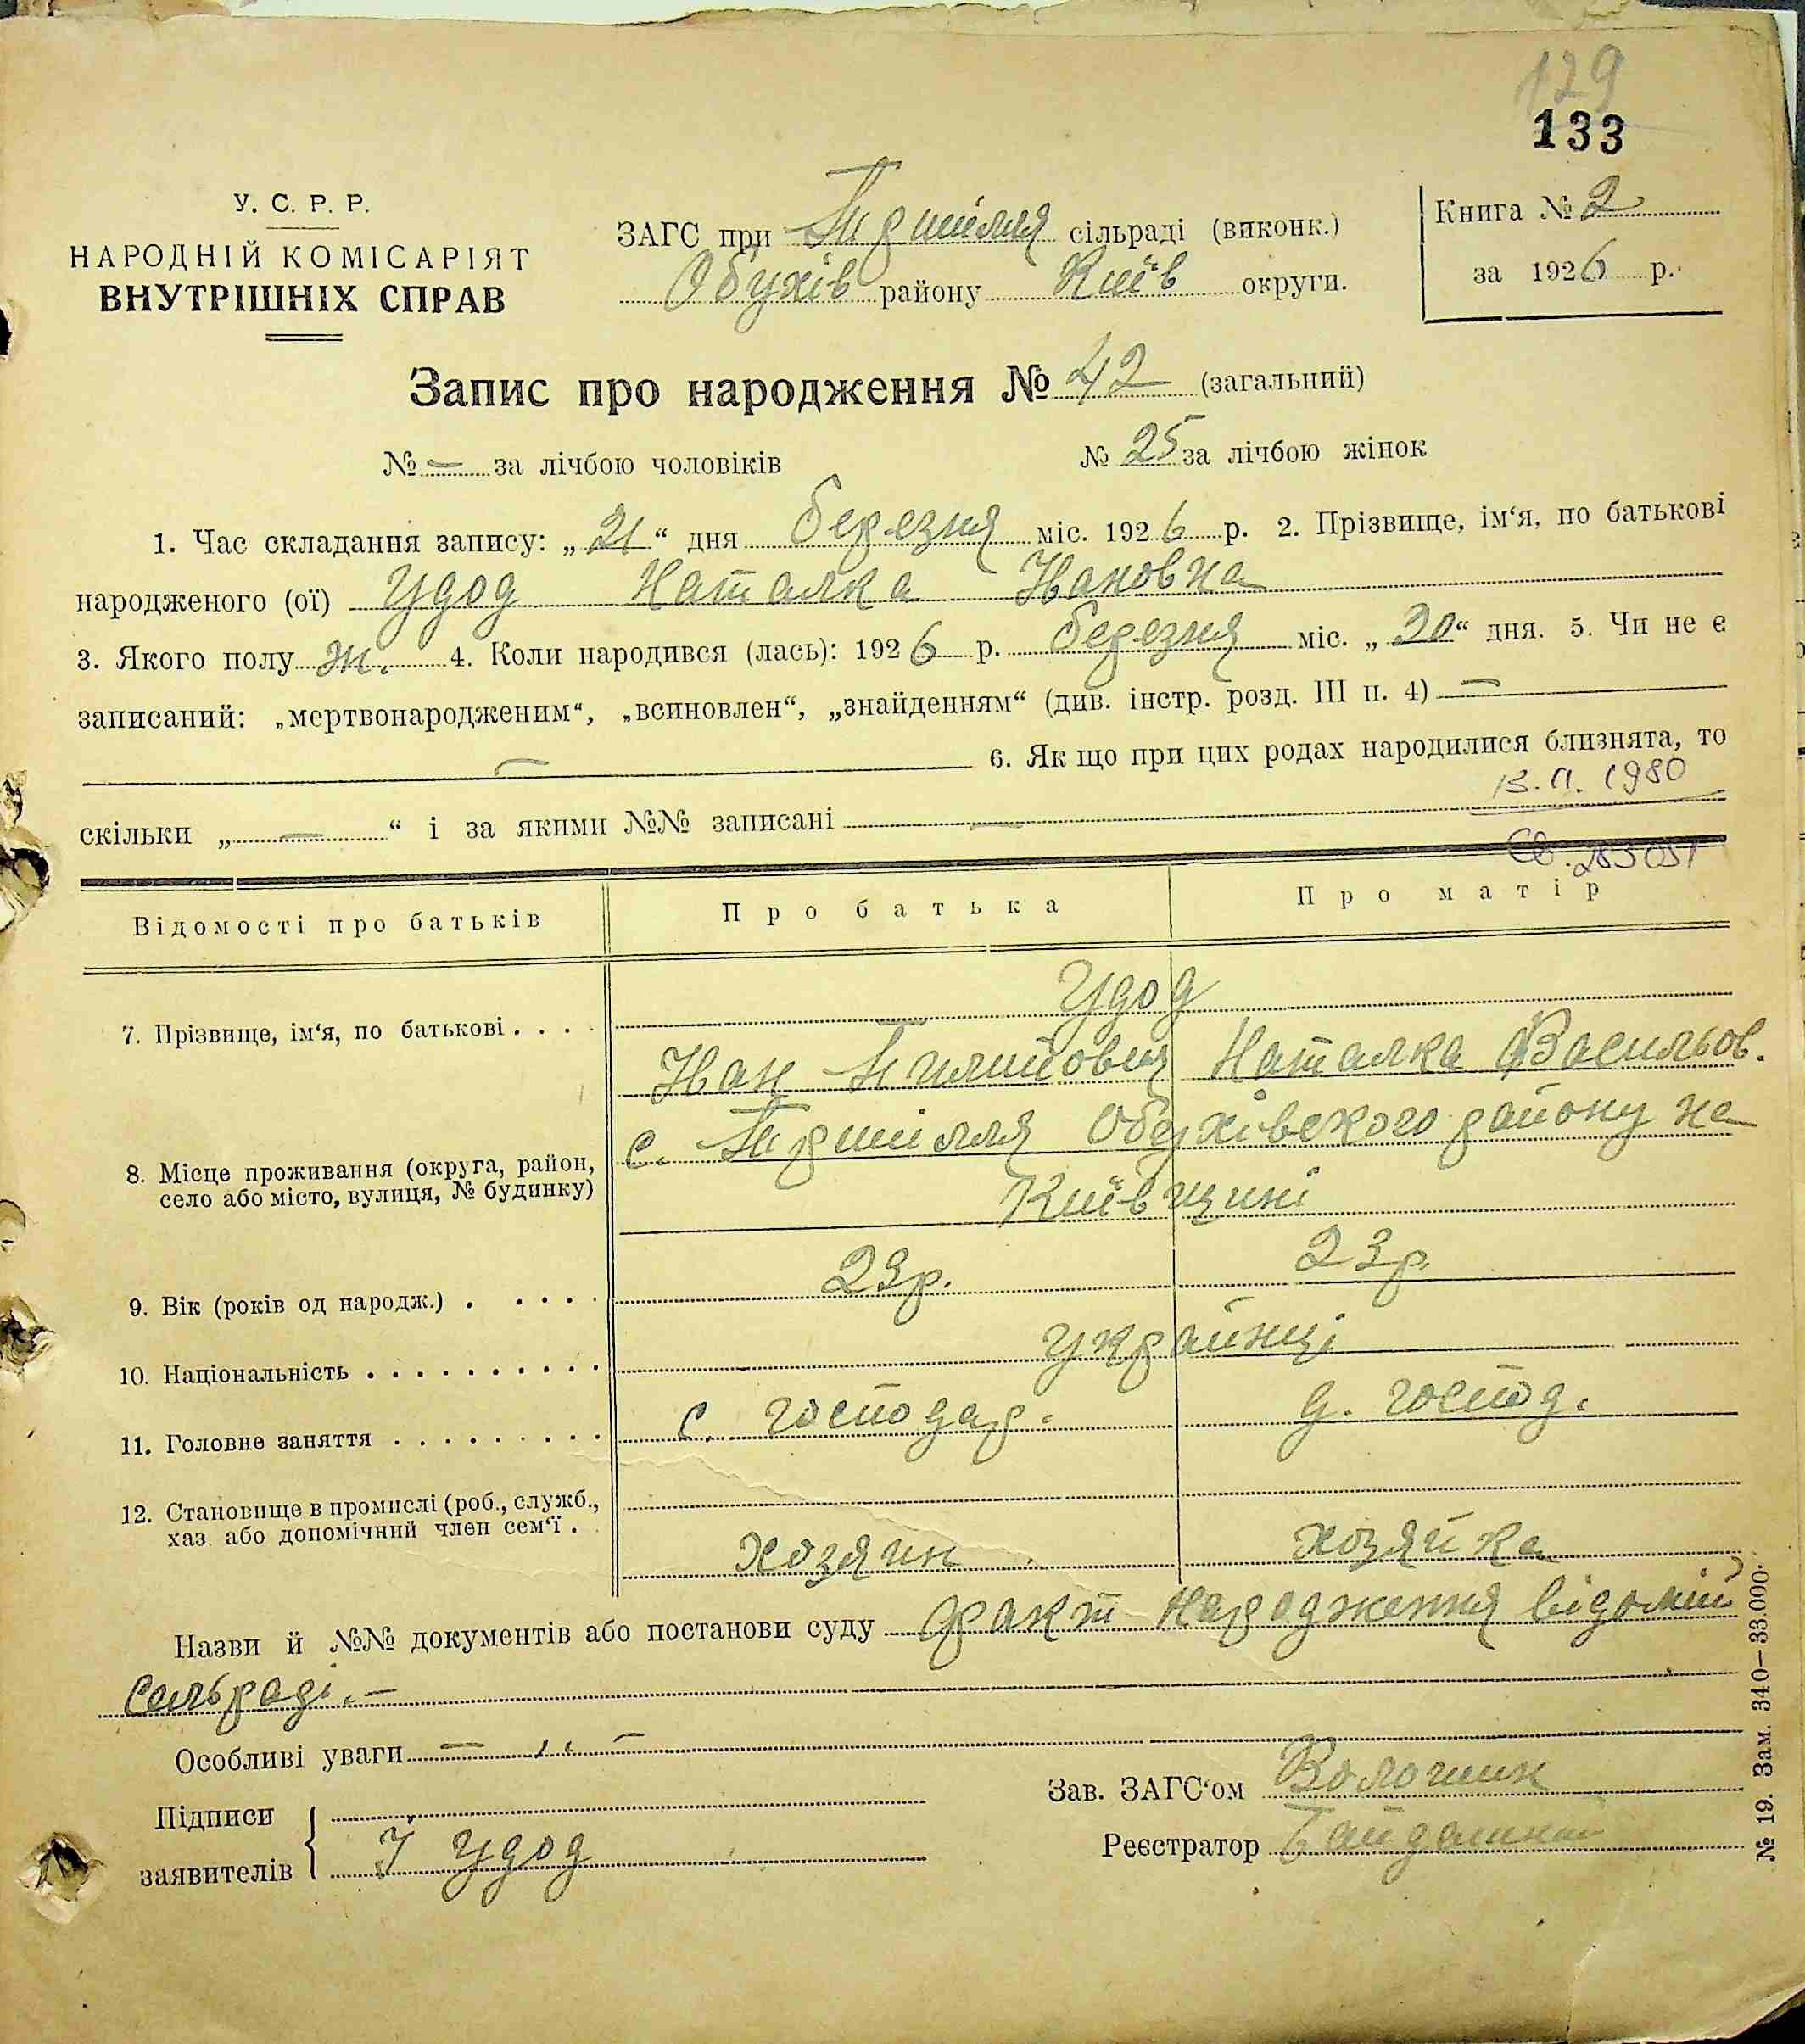 129
133
У. С. Р. Р.
НАРОДНІЙ КОМІСАРІЯТ
ВНУТРІШНІХ СПРАВ
ЗАГС при Трипілля сільраді (виконк.)
Обухів району Київ округи.
Книга № 2
за 1926 р.
Запис про народження № 42 (загальний)
№ — за лічбою чоловіків № 25 за лічбою жінок
1. Час складання запису: „21“ дня березня міс. 1926 р. 2. Прізвище, ім‘я, по батькові
народженого (ої) Удод Наталка Івановна
3. Якого полу ж. 4. Коли народився (лась): 1926 р. березня міс. „20“ дня. 5. Чи не є
записаний: „мертвонародженим“, „всиновлен“, „знайденням“ (див. інстр. розд. III п. 4) —
— 6. Як що при цих родах народилися близнята, то
1980
скільки „ — “ і за якими №№ записані —
Відомості про батьків Про батька Про матір
Удод
7. Прізвище, ім‘я, по батькові . . . .
Іван Пилипович Наталка Васильов.
с. Трипілля Обухівського району на
8. Місце проживання (округа, район,
село або місто, вулиця, № будинку)
Київщині
9. Вік (років од народж.) . . . . . 23р. 23р.
10. Національність . . . . . . . . . . українці
11. Головне заняття . . . . . . . . . с. господар. д. господ.
12. Становище в промислі (роб., служб.,
хаз. або допомічний член сем‘ї . .
хозяин хозяйка
Назви й №№ документів або постанови суду факт народження відомий
сельраді.—
Особливі уваги — „ —
Підписи
заявителів
І Удод
Зав. ЗАГС‘ом Волошин
Реєстратор
№ 19. Зам. 340—33.000.